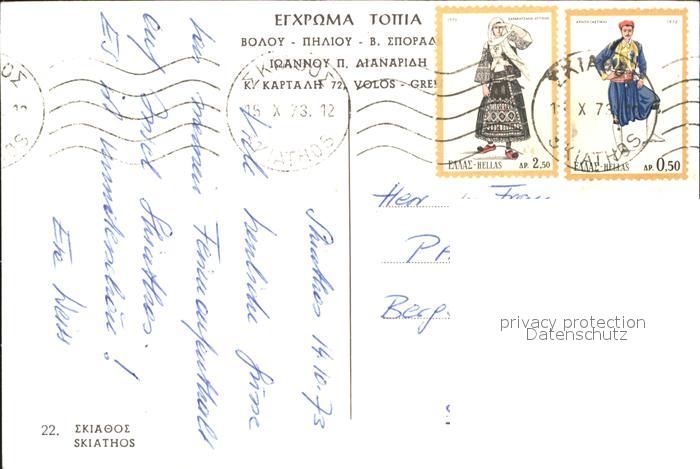 ΕΓΧΡΩΜΑ ΤΟΠΙΑ
ΒΟΛΟΥ - ΠΗΛΙΟΥ - Β. ΣΠΟΡΑΔ
ΙΩΑΝΝΟΥ Π. ΔΙΑΝΑΡΙΔΗ
Κ. ΚΑΡΤΑΛΗ 72, VOLOS - GRE
ΣΚΙΑΘΟΣ
15 X 73. 12
SKIATHOS
1972
ΕΛΛΑΣ-HELLAS ΔΡ. 2,50
1972
ΕΛΛΑΣ-HELLAS ΔΡ. 0,50
ΣΚΙΑΘΟΣ
X 73
SKIATHOS
Skiathos 14.10.73
Viele herzliche Grüße
von meinem Ferienaufenthalt
auf Insel Skiathos.
Es ist !
Herr
Berg
privacy protection
Datenschutz
22. ΣΚΙΑΘΟΣ
SKIATHOS